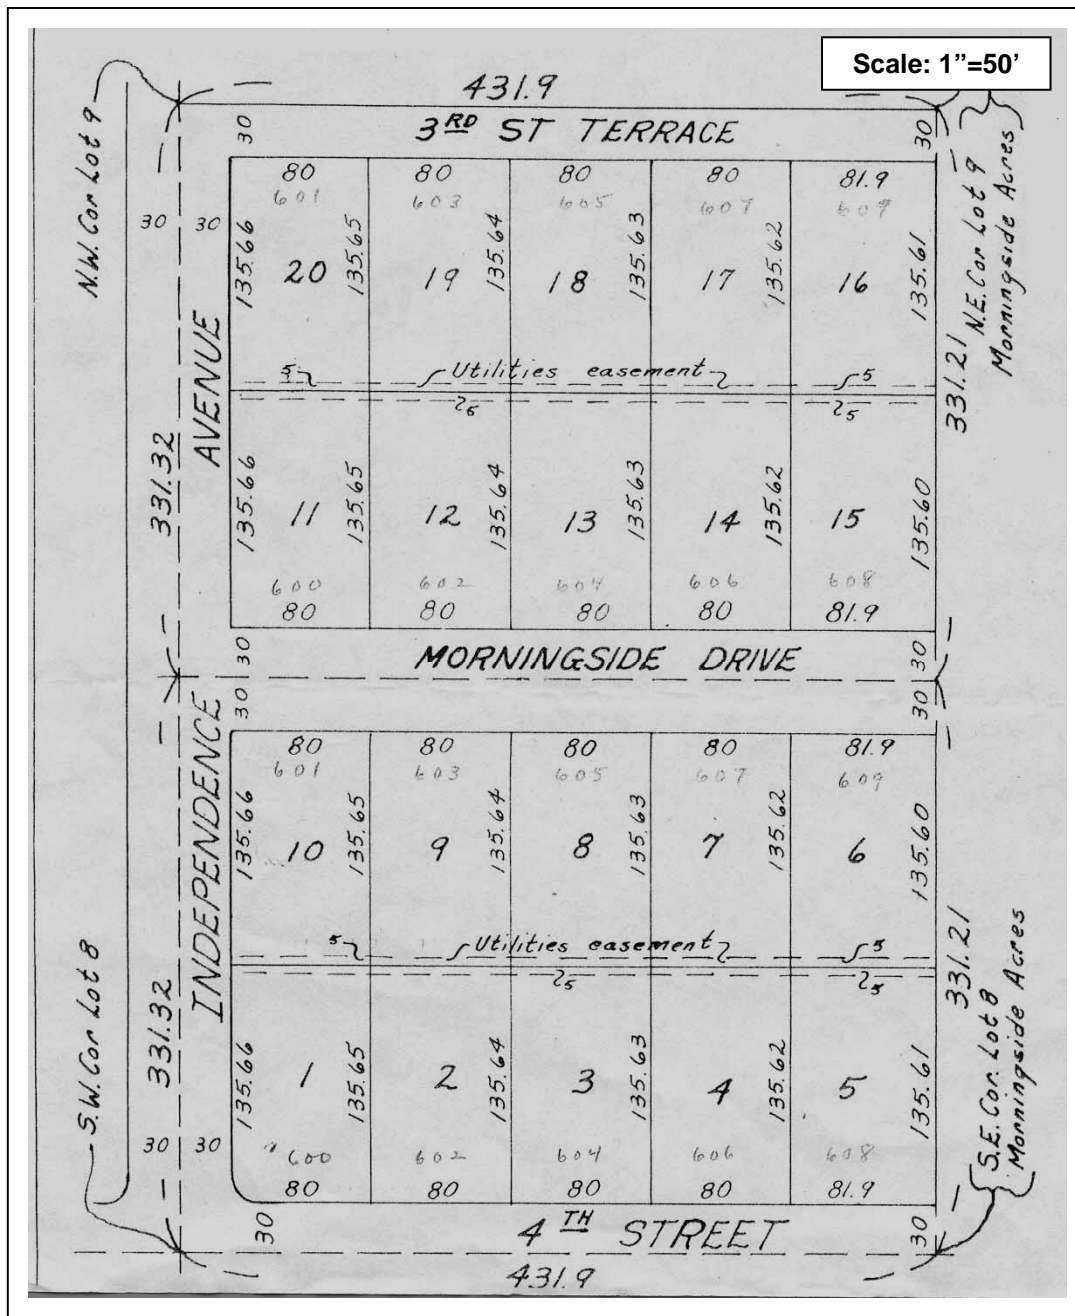 Scale: 1"=50'
431.9
3RD ST TERRACE
30
30
N.W. Cor Lot 9
N.E. Cor Lot 9
Morningside Acres
80 80 80 80 81.9
601 603 605 607 609
30 30
135.66 135.65 135.64 135.63 135.62 135.61
20 19 18 17 16
AVENUE
5 Utilities easement 5
5
331.32
331.21
135.66 135.65 135.64 135.63 135.62 135.60
11 12 13 14 15
600 602 604 606 608
80 80 80 80 81.9
30 MORNINGSIDE DRIVE 30
30 30
INDEPENDENCE
80 80 80 80 81.9
601 603 605 607 609
135.66 135.65 135.64 135.63 135.62 135.60
10 9 8 7 6
5 Utilities easement 5
5 5
331.32
331.21
S.W. Cor Lot 8
S.E. Cor. Lot 8
Morningside Acres
135.66 135.65 135.64 135.63 135.62 135.61
1 2 3 4 5
30 30
600 602 604 606 608
80 80 80 80 81.9
30 4TH STREET 30
431.9